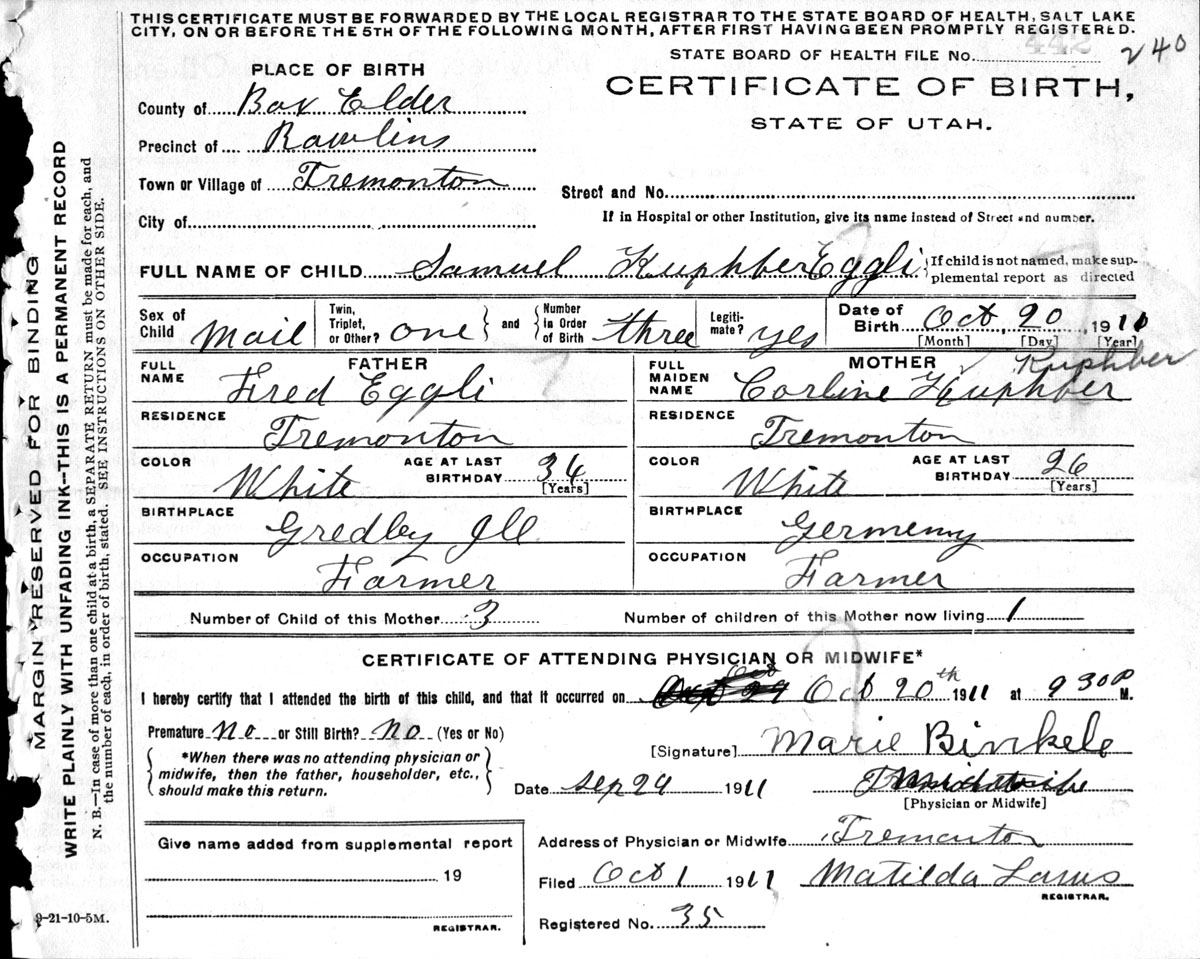 THIS CERTIFICATE MUST BE FORWARDED BY THE LOCAL REGISTRAR TO THE STATE BOARD OF HEALTH, SALT LAKE
CITY, ON OR BEFORE THE 5TH OF THE FOLLOWING MONTH, AFTER FIRST HAVING BEEN PROMPTLY REGISTERED.
442
STATE BOARD OF HEALTH FILE No. 240
PLACE OF BIRTH
CERTIFICATE OF BIRTH,
STATE OF UTAH.
County of Box Elder
Precinct of Rawlins
Town or Village of Tremonton
Street and No.
City of
If in Hospital or other Institution, give its name instead of Street and number.
FULL NAME OF CHILD Samuel Kuphber Eggli {If child is not named, make sup-
plemental report as directed
Sex of Child Mail
Twin, Triplet, or Other? one } and { Number in Order of Birth three
Legiti-mate? yes
Date of Birth Oct, 20, 1911
[Month] [Day] [Year]
FATHER
FULL NAME Fred Eggli
RESIDENCE
Tremonton
COLOR White
AGE AT LAST BIRTHDAY 34
[Years]
BIRTHPLACE
Gredley Ill
OCCUPATION
Farmer
MOTHER Kuphber
FULL MAIDEN NAME Corline Kuphber
RESIDENCE
Tremonton
COLOR White
AGE AT LAST BIRTHDAY 26
[Years]
BIRTHPLACE
Germeny
OCCUPATION
Farmer
Number of Child of this Mother 3 Number of children of this Mother now living 1
CERTIFICATE OF ATTENDING PHYSICIAN OR MIDWIFE*
I hereby certify that I attended the birth of this child, and that it occurred on Oct 20th 1911 at 9 30 P M.
Premature No or Still Birth? No (Yes or No)
{ *When there was no attending physician or
midwife, then the father, householder, etc.,
should make this return. }
[Signature] Marie Binkele
Date Sep 29 1911
[Physician or Midwife]
Give name added from supplemental report
19
REGISTRAR.
Address of Physician or Midwife Tremonton
Filed Oct 1 1911 Matilda
REGISTRAR.
Registered No. 35
9-21-10-5M.
MARGIN RESERVED FOR BINDING
WRITE PLAINLY WITH UNFADING INK—THIS IS A PERMANENT RECORD
N. B.—In case of more than one child at a birth, a SEPARATE RETURN must be made for each, and
the number of each, in order of birth, stated. SEE INSTRUCTIONS ON OTHER SIDE.